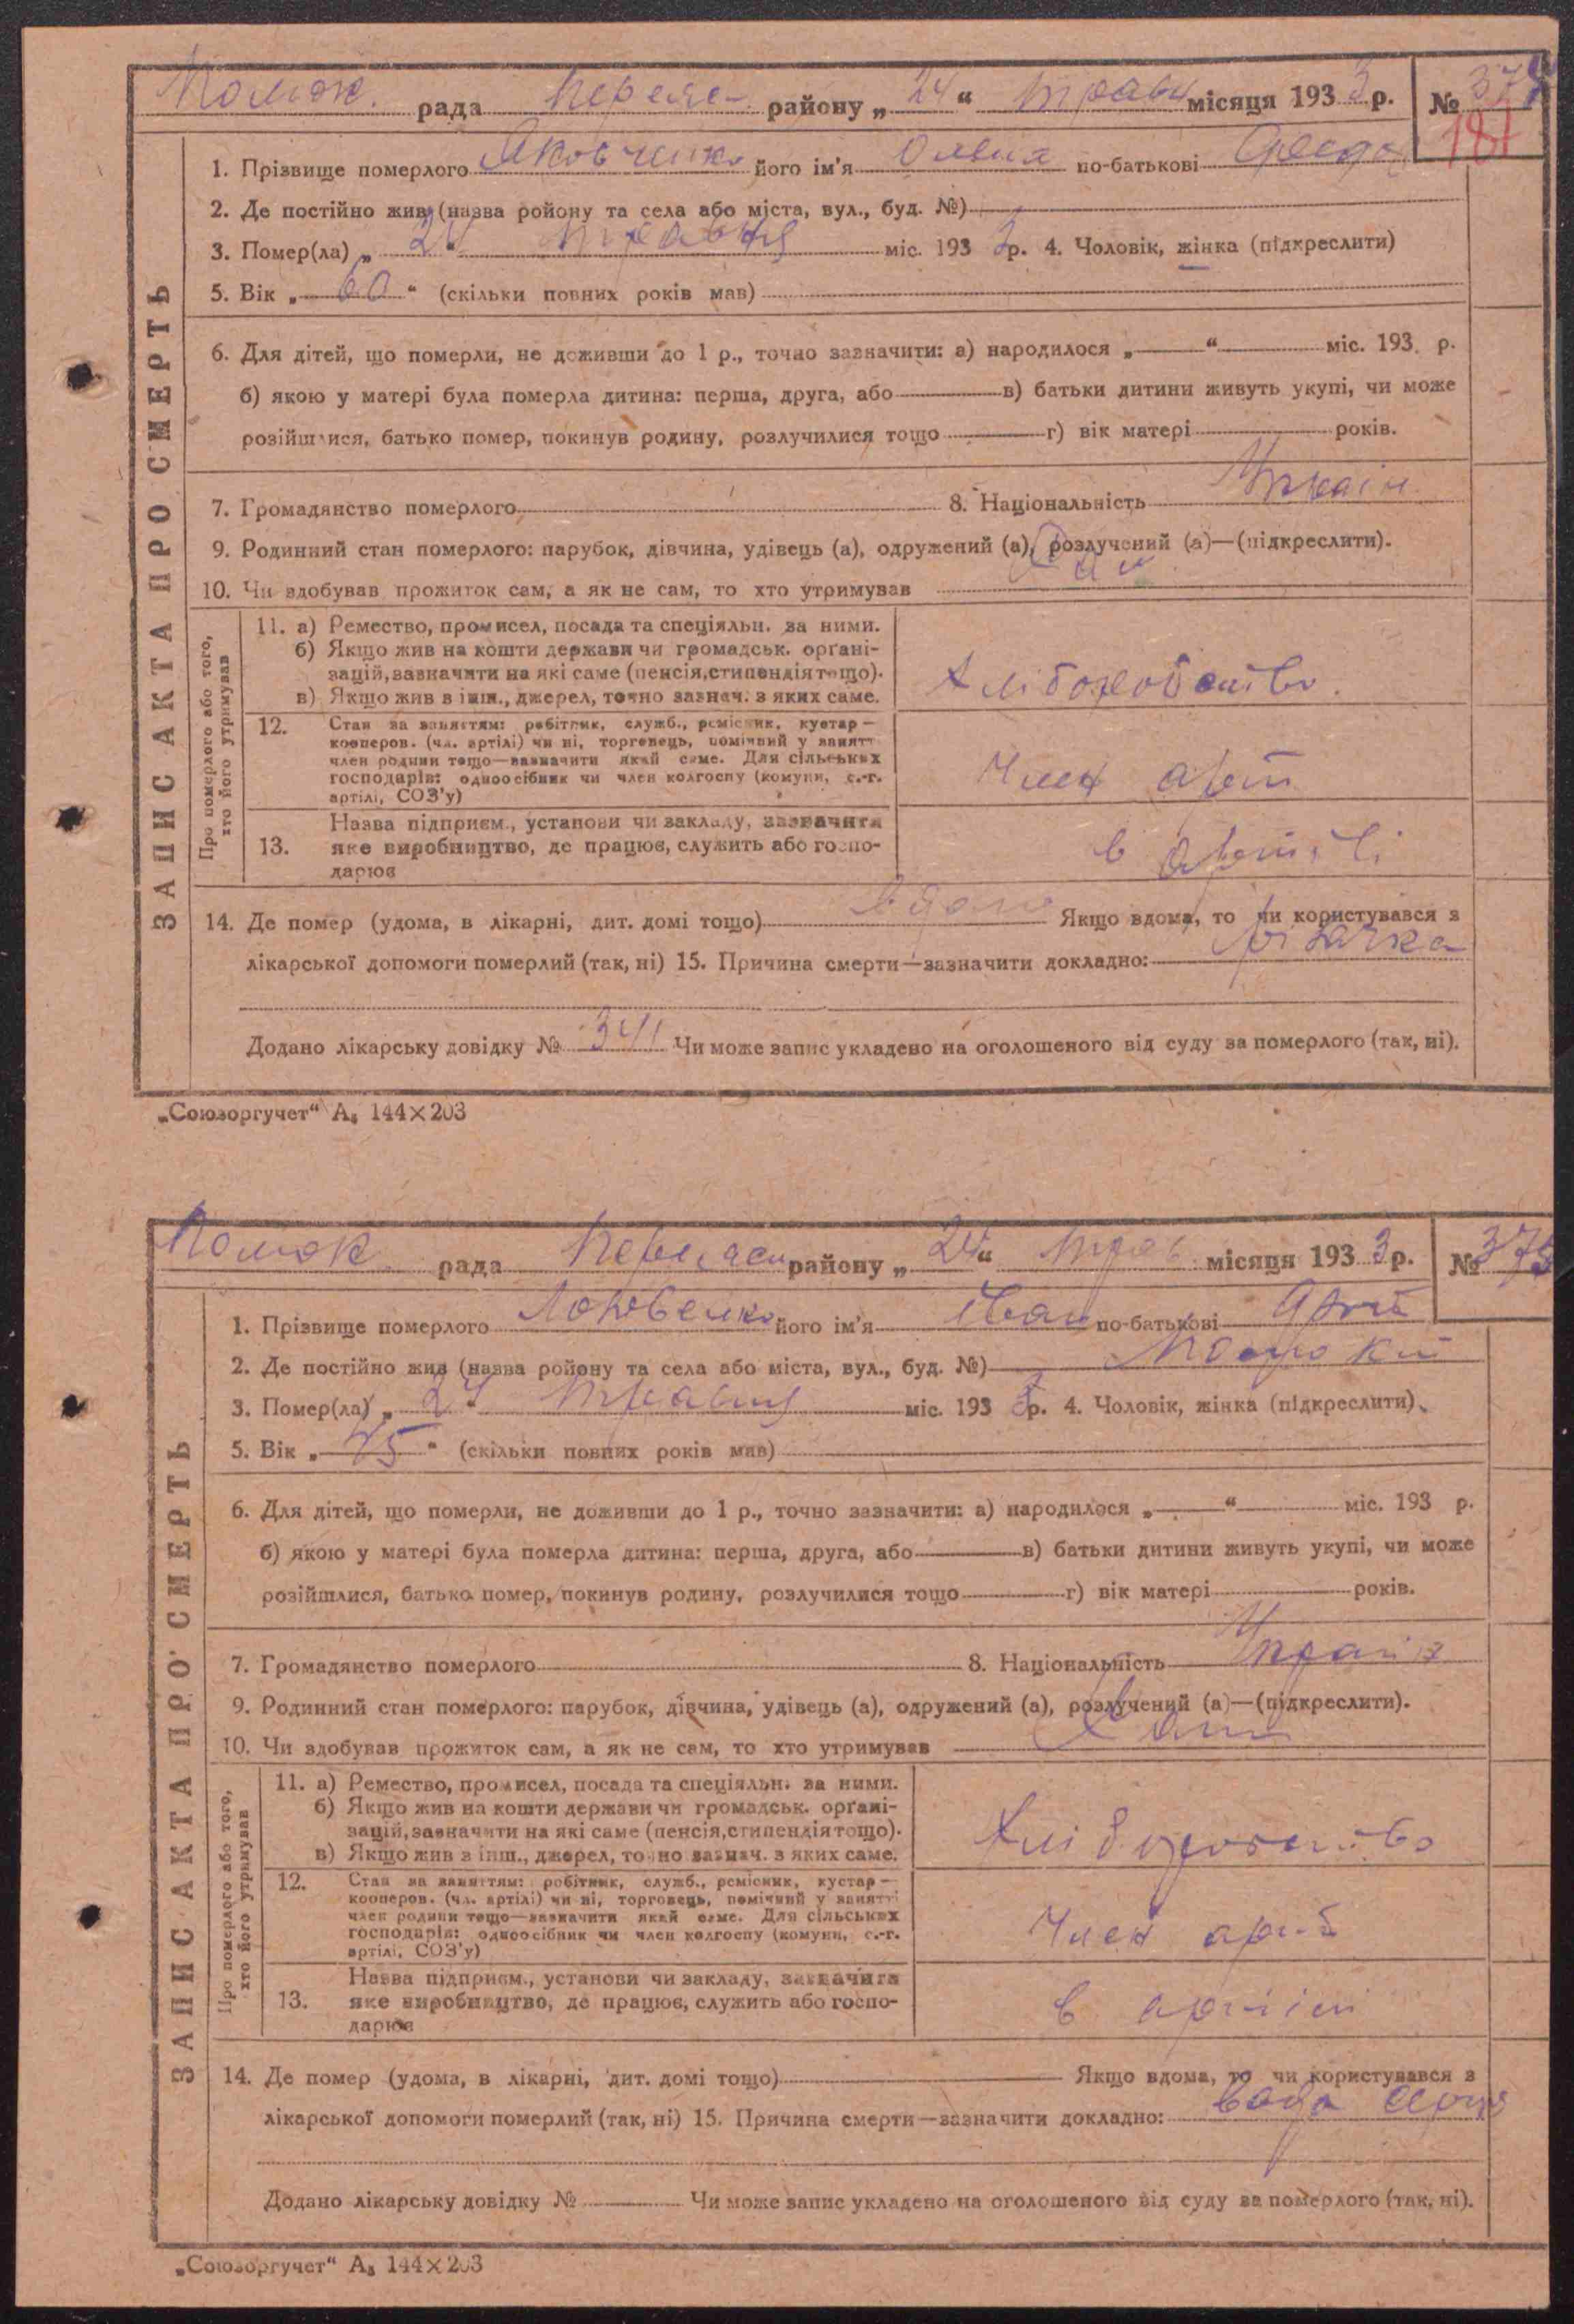 Помок. рада Переяс- району „24“ травн місяця 1933 р. № 374
187
ЗАПИС АКТА ПРО СМЕРТЬ
1. Прізвище померлого Яковченко його ім'я Олена по-батькові
2. Де постійно жив (назва ройону та села або міста, вул., буд. №)
3. Помер(ла) „24“ травня міс. 1933 р. 4. Чоловік, жінка (підкреслити)
5. Вік „60“ (скільки повних років мав)
6. Для дітей, що померли, не доживши до 1 р., точно зазначити: а) народилося „ “ міс. 193 р.
б) якою у матері була померла дитина: перша, друга, або в) батьки дитини живуть укупі, чи може
розійшлися, батько помер, покинув родину, розлучилися тощо г) вік матері років.
7. Громадянство померлого 8. Національність Україн.
9. Родинний стан померлого: парубок, дівчина, удівець (а), одружений (а), розлучений (а)—(підкреслити).
10. Чи здобував прожиток сам, а як не сам, то хто утримував Сам
Про померлого або того, хто його утримував
11. а) Ремество, промисел, посада та спеціяльн. за ними.
б) Якщо жив на кошти держави чи громадськ. органі-
зацій, зазначити на які саме (пенсія, стипендія тощо).
в) Якщо жив в інш., джерел, точно зазнач. з яких саме.
Хліборобство.
12. Стан за заняттям: робітник, служб., ремісник, кустар —
кооперов. (чл. артілі) чи ні, торговець, помічний у занятті
член родини тощо—зазначити який саме. Для сільських
господарів: одноосібник чи член колгоспу (комуни, с.-г.
артілі, СОЗ'у)
Член арт
13. Назва підприєм., установи чи закладу, зазначити
яке виробництво, де працює, служить або госпо-
дарює
в артілі
14. Де помер (удома, в лікарні, дит. домі тощо) вдома Якщо вдома, то чи користувався з
лікарської допомоги померлий (так, ні) 15. Причина смерти—зазначити докладно:
Додано лікарську довідку № 341 Чи може запис укладено на оголошеного від суду за померлого (так, ні).
„Союзоргучет“ А₅ 144×203
Помок. рада Переяслав району „24“ трав місяця 1933 р. № 375
ЗАПИС АКТА ПРО СМЕРТЬ
1. Прізвище померлого його ім'я Іван по-батькові
2. Де постійно жив (назва ройону та села або міста, вул., буд. №)
3. Помер(ла) „24“ травня міс. 1933 р. 4. Чоловік, жінка (підкреслити).
5. Вік „75“ (скільки повних років мав)
6. Для дітей, що померли, не доживши до 1 р., точно зазначити: а) народилося „ “ міс. 193 р.
б) якою у матері була померла дитина: перша, друга, або в) батьки дитини живуть укупі, чи може
розійшлися, батько помер, покинув родину, розлучилися тощо г) вік матері років.
7. Громадянство померлого 8. Національність Україн
9. Родинний стан померлого: парубок, дівчина, удівець (а), одружений (а), розлучений (а)—(підкреслити).
10. Чи здобував прожиток сам, а як не сам, то хто утримував Сам
Про померлого або того, хто його утримував
11. а) Ремество, промисел, посада та спеціяльн. за ними.
б) Якщо жив на кошти держави чи громадськ. органі-
зацій, зазначити на які саме (пенсія, стипендія тощо).
в) Якщо жив з інш., джерел, точно зазнач. з яких саме.
Хліборобство
12. Стан за заняттям: робітник, служб., ремісник, кустар —
кооперов. (чл. артілі) чи ні, торговець, помічний у занятті
член родини тощо—зазначити який саме. Для сільських
господарів: одноосібник чи член колгоспу (комуни, с.-г.
артілі, СОЗ'у)
Член
13. Назва підприєм., установи чи закладу, зазначити
яке виробництво, де працює, служить або госпо-
дарює
в артілі
14. Де помер (удома, в лікарні, дит. домі тощо) Якщо вдома, то чи користувався з
лікарської допомоги померлий (так, ні) 15. Причина смерти—зазначити докладно: вада серця
Додано лікарську довідку № Чи може запис укладено на оголошеного від суду за померлого (так, ні).
„Союзоргучет“ А₅ 144×203